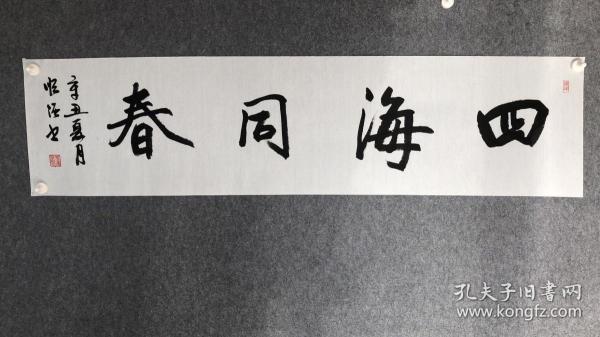 四海同春
辛丑夏月
孔夫子旧書网
www.kongfz.com